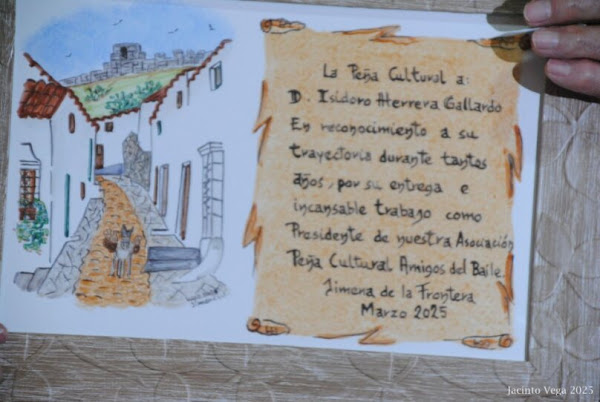 La Peña Cultural a:
D. Isidoro Herrera Gallardo
En reconocimiento a su
trayectoria durante tantos
años, por su entrega e
incansable trabajo como
Presidente de nuestra Asociación
Peña Cultural Amigos del Baile.
Jimena de la Frontera
Marzo 2025
Jacinto Vega 2025